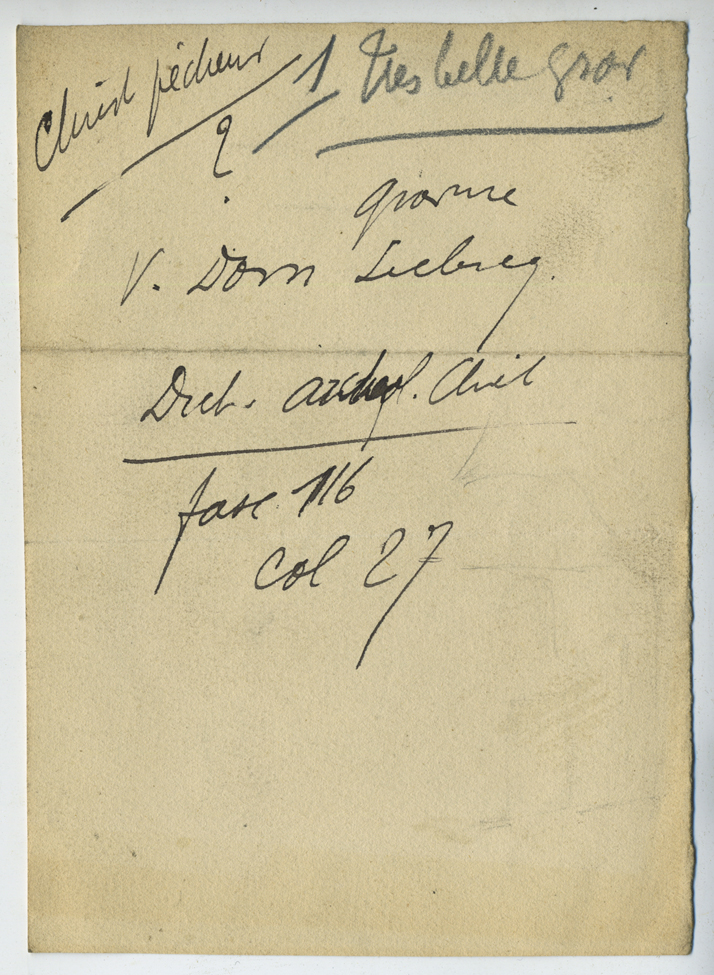 Christ pêcheur 1 Très belle grav
?
gravure
V. Dom Leclercq
Dict. archéol. Chrét
fasc. 116
col 27